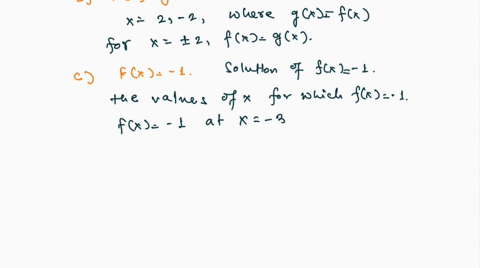 x = 2, -2, where g(x) = f(x)
for x = ±2, f(x) = g(x).
c) f(x) = -1. Solution of f(x) = -1.
the values of x for which f(x) = -1.
f(x) = -1 at x = -3